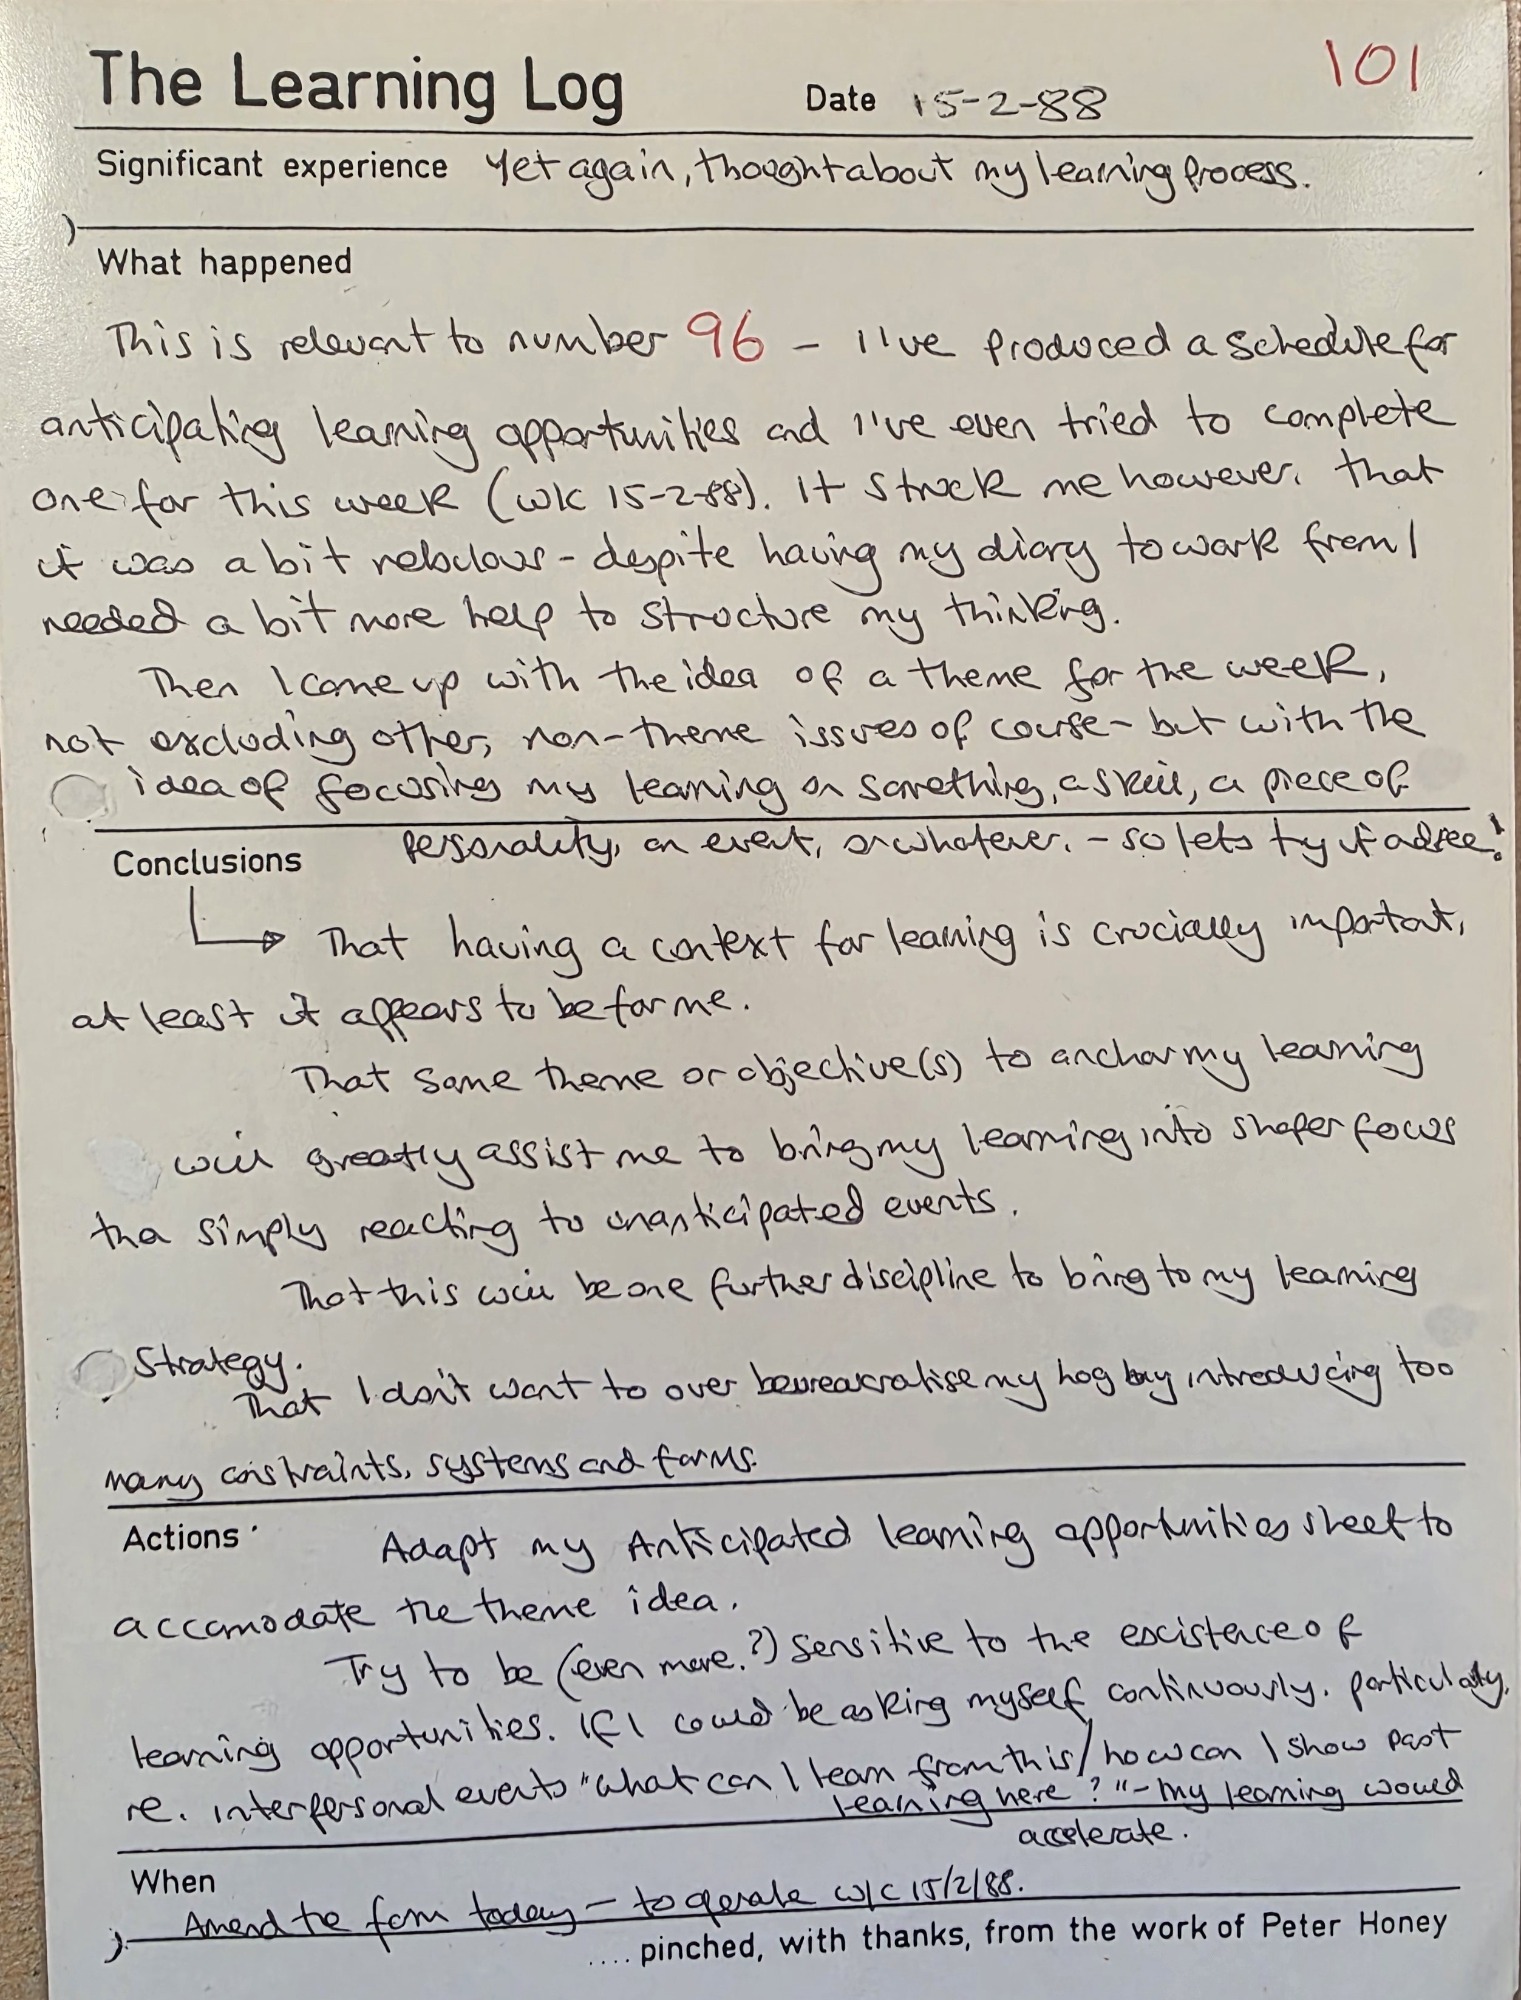 The Learning Log Date 15-2-88 101
Significant experience Yet again, thought about my learning process.
What happened
This is relevant to number 96 - I've produced a schedule for
anticipating learning opportunities and I've even tried to complete
one for this week (wk 15-2-88). It struck me however, that
it was a bit nebulous - despite having my diary to work from I
needed a bit more help to structure my thinking.
Then I came up with the idea of a theme for the week,
not excluding other, non-theme issues of course - but with the
idea of focusing my learning on something, a skill, a piece of
personality, an event, or whatever. - so lets try it
Conclusions
That having a context for learning is crucially important,
at least it appears to be for me.
That some theme or objective(s) to anchor my learning
will greatly assist me to bring my learning into shaper focus
tha simply reacting to unanticipated events.
That this will be one further discipline to bring to my learning
Strategy.
That I don't want to over beureakratise my log by introducing too
many constraints, systems and forms.
Actions Adapt my Anticipated learning opportunities sheet to
accomodate the theme idea.
Try to be (even more?) sensitive to the existence of
learning opportunities. If I could be asking myself continuously, particularly,
re. interpersonal events "what can I learn from this / how can I show past
learning here?" - my learning would
accelerate.
When
Amend the form today - to operate w/c 15/2/88.
.... pinched, with thanks, from the work of Peter Honey